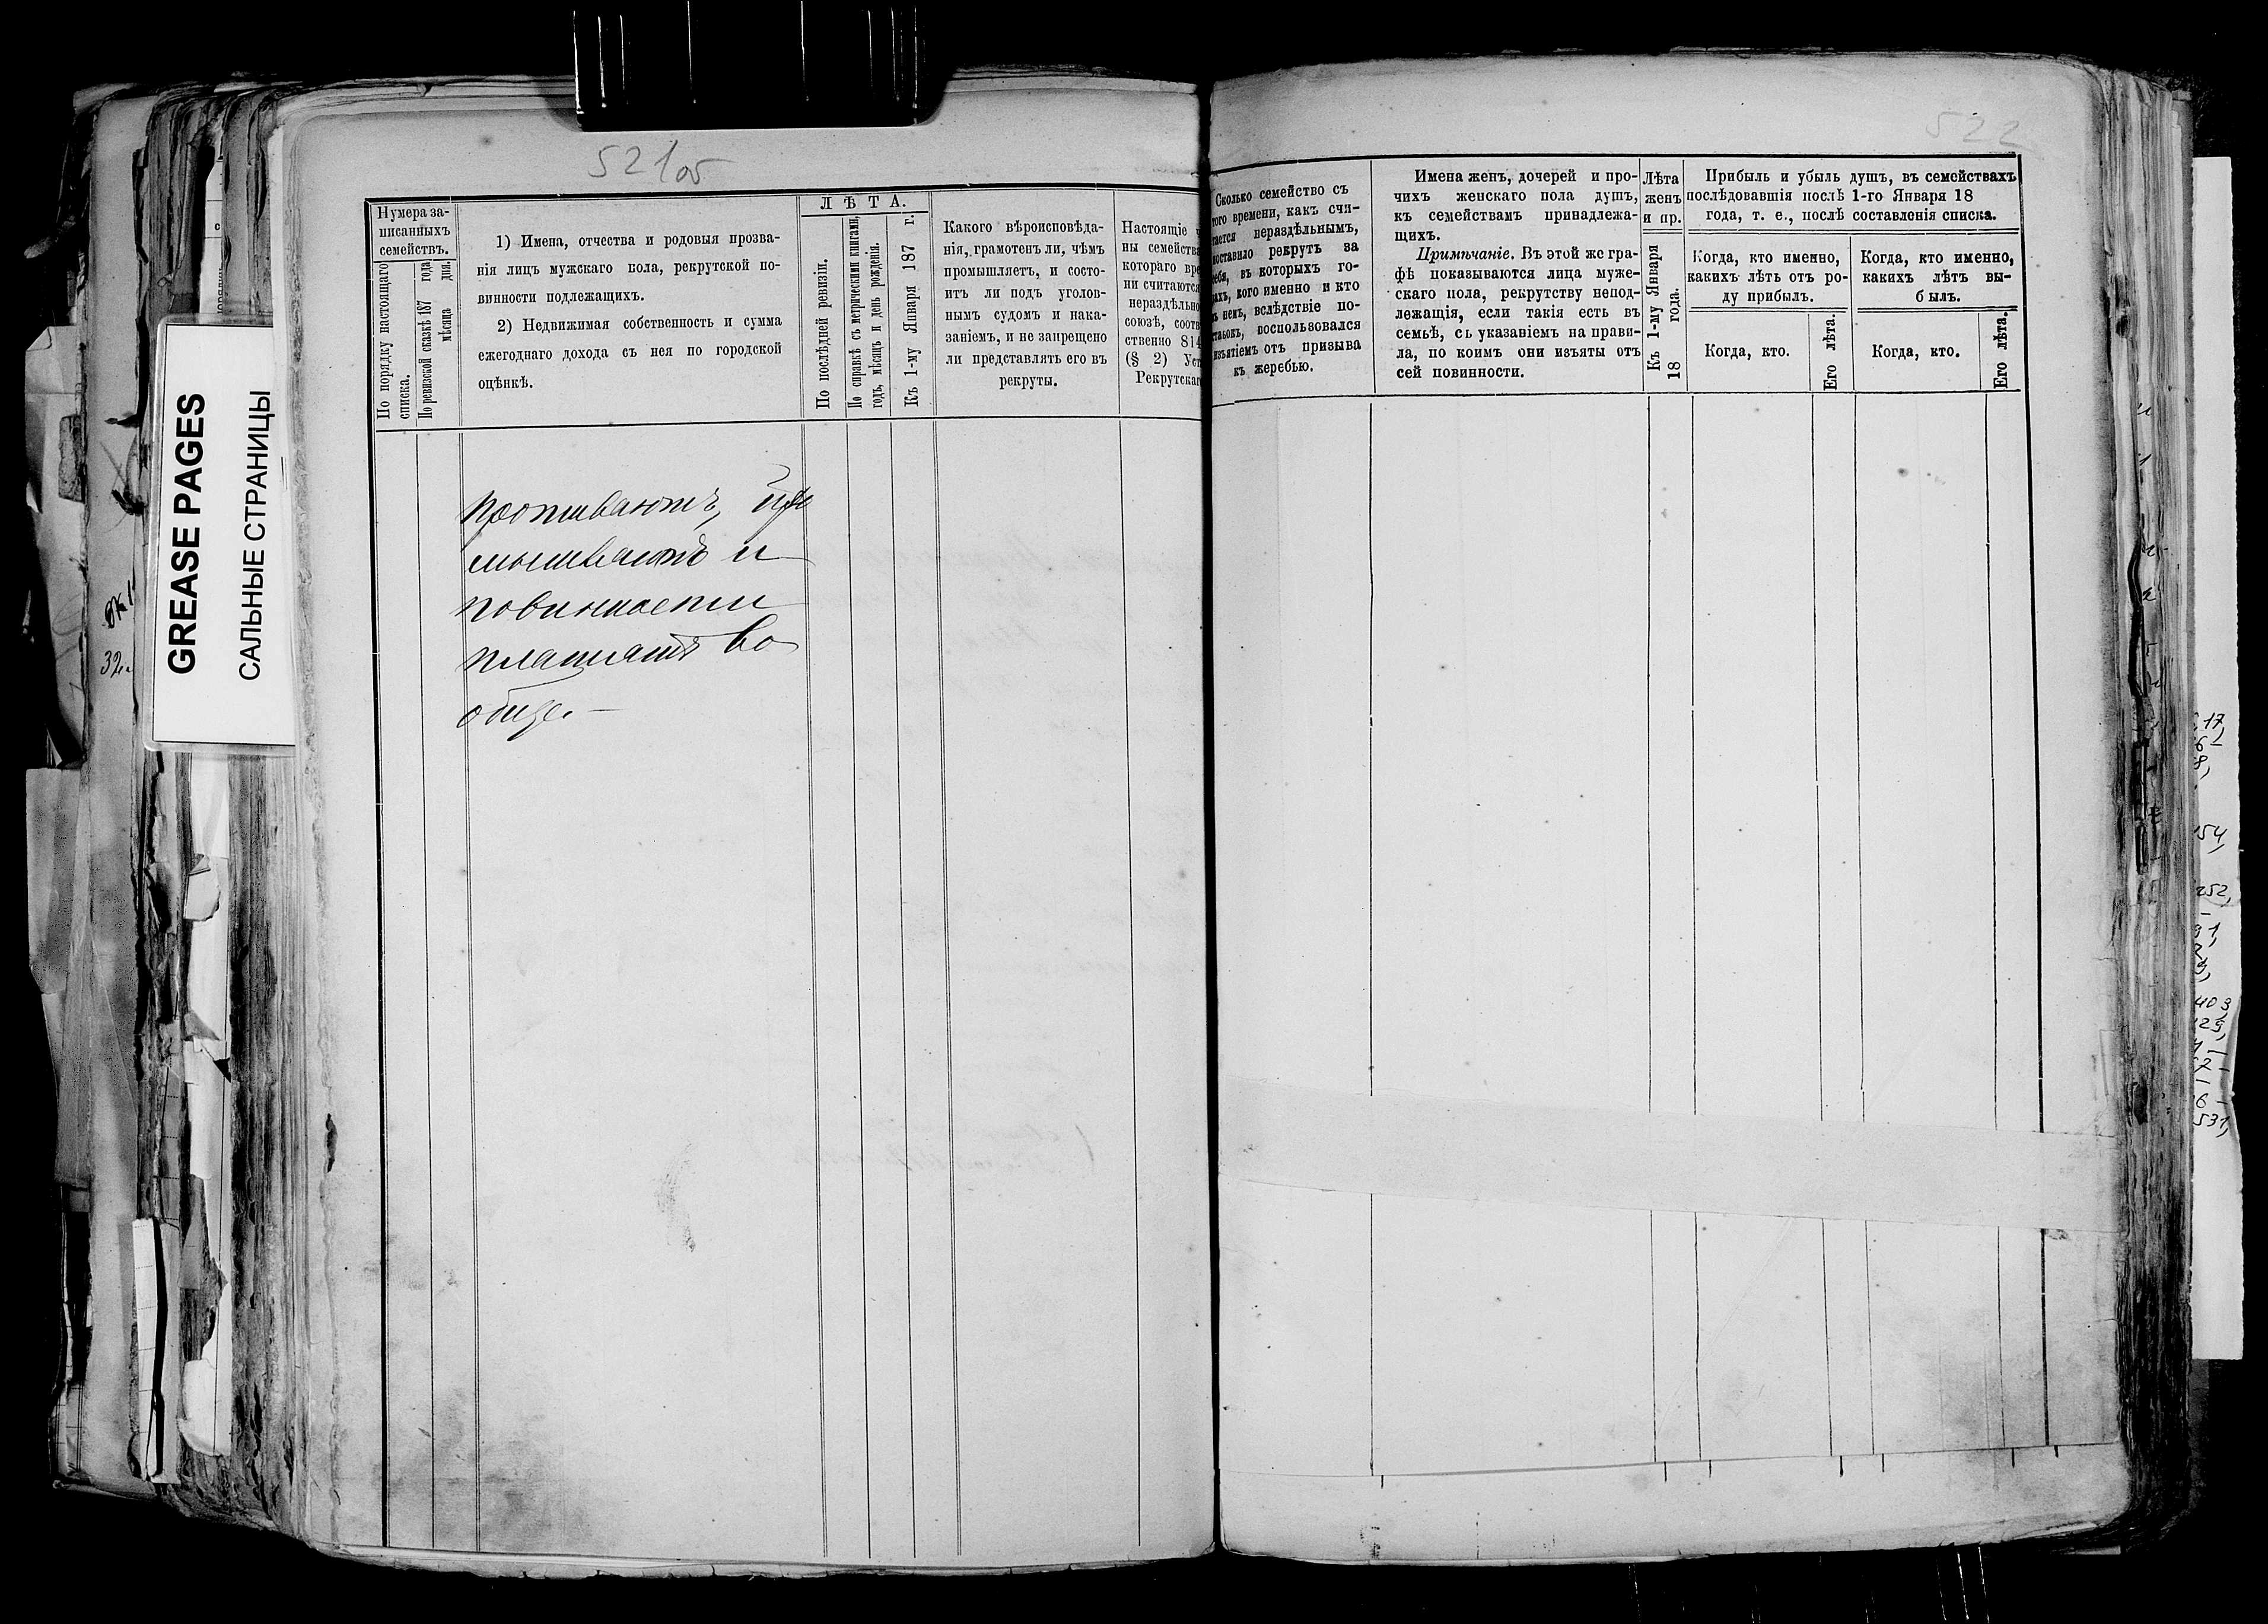 521об
522
GREASE PAGES
САЛЬНЫЕ СТРАНИЦЫ
Нумера за-
писанныхъ
семействъ.
По порядку настоящаго
списка.
По ревизской сказкѣ 187 года
мѣсяца дня.
1) Имена, отчества и родовыя прозва-
нія лицъ мужскаго пола, рекрутской по-
винности подлежащихъ.
2) Недвижимая собственность и сумма
ежегоднаго дохода съ нея по городской
оцѣнкѣ.
ЛѢТА.
По послѣдней ревизіи.
По справкѣ съ метрическими книгами,
годъ, мѣсяцъ и день рожденія.
Къ 1-му Января 187 г.
Какого вѣроисповѣда-
нія, грамотенъ ли, чѣмъ
промышляетъ, и состо-
итъ ли подъ уголов-
нымъ судомъ и нака-
заніемъ, и не запрещено
ли представлять его въ
рекруты.
Настоящіе ч
ны семейства
котораго вре
ни считаются
нераздѣльно
союзѣ, соотв
ственно 814
(§ 2) Уст
Рекрутскаг
Сколько семейство съ
того времени, какъ счи-
тается нераздѣльнымъ,
поставило рекрутъ за
себя, въ которыхъ го-
дахъ, кого именно и кто
въ немъ, вслѣдствіе по-
ставокъ, воспользовался
изъятіемъ отъ призыва
къ жеребью.
Имена женъ, дочерей и про-
чихъ женскаго пола душъ,
къ семействамъ принадлежа-
щихъ.
Примѣчаніе. Въ этой же гра-
фѣ показываются лица муже-
скаго пола, рекрутству непод-
лежащія, если такія есть въ
семьѣ, съ указаніемъ на прави-
ла, по коимъ они изъяты отъ
сей повинности.
Лѣта
женъ
и пр.
Къ 1-му Января
18 года.
Прибыль и убыль душъ, въ семействахъ
послѣдовавшія послѣ 1-го Января 18
года, т. е., послѣ составленія списка.
Когда, кто именно,
какихъ лѣтъ отъ ро-
ду прибылъ.
Когда, кто.
Его лѣта.
Когда, кто именно,
какихъ лѣтъ вы-
былъ.
Когда, кто.
Его лѣта.
проживаютъ, про
мышляютъ и
повинности
платятъ во
обще. —